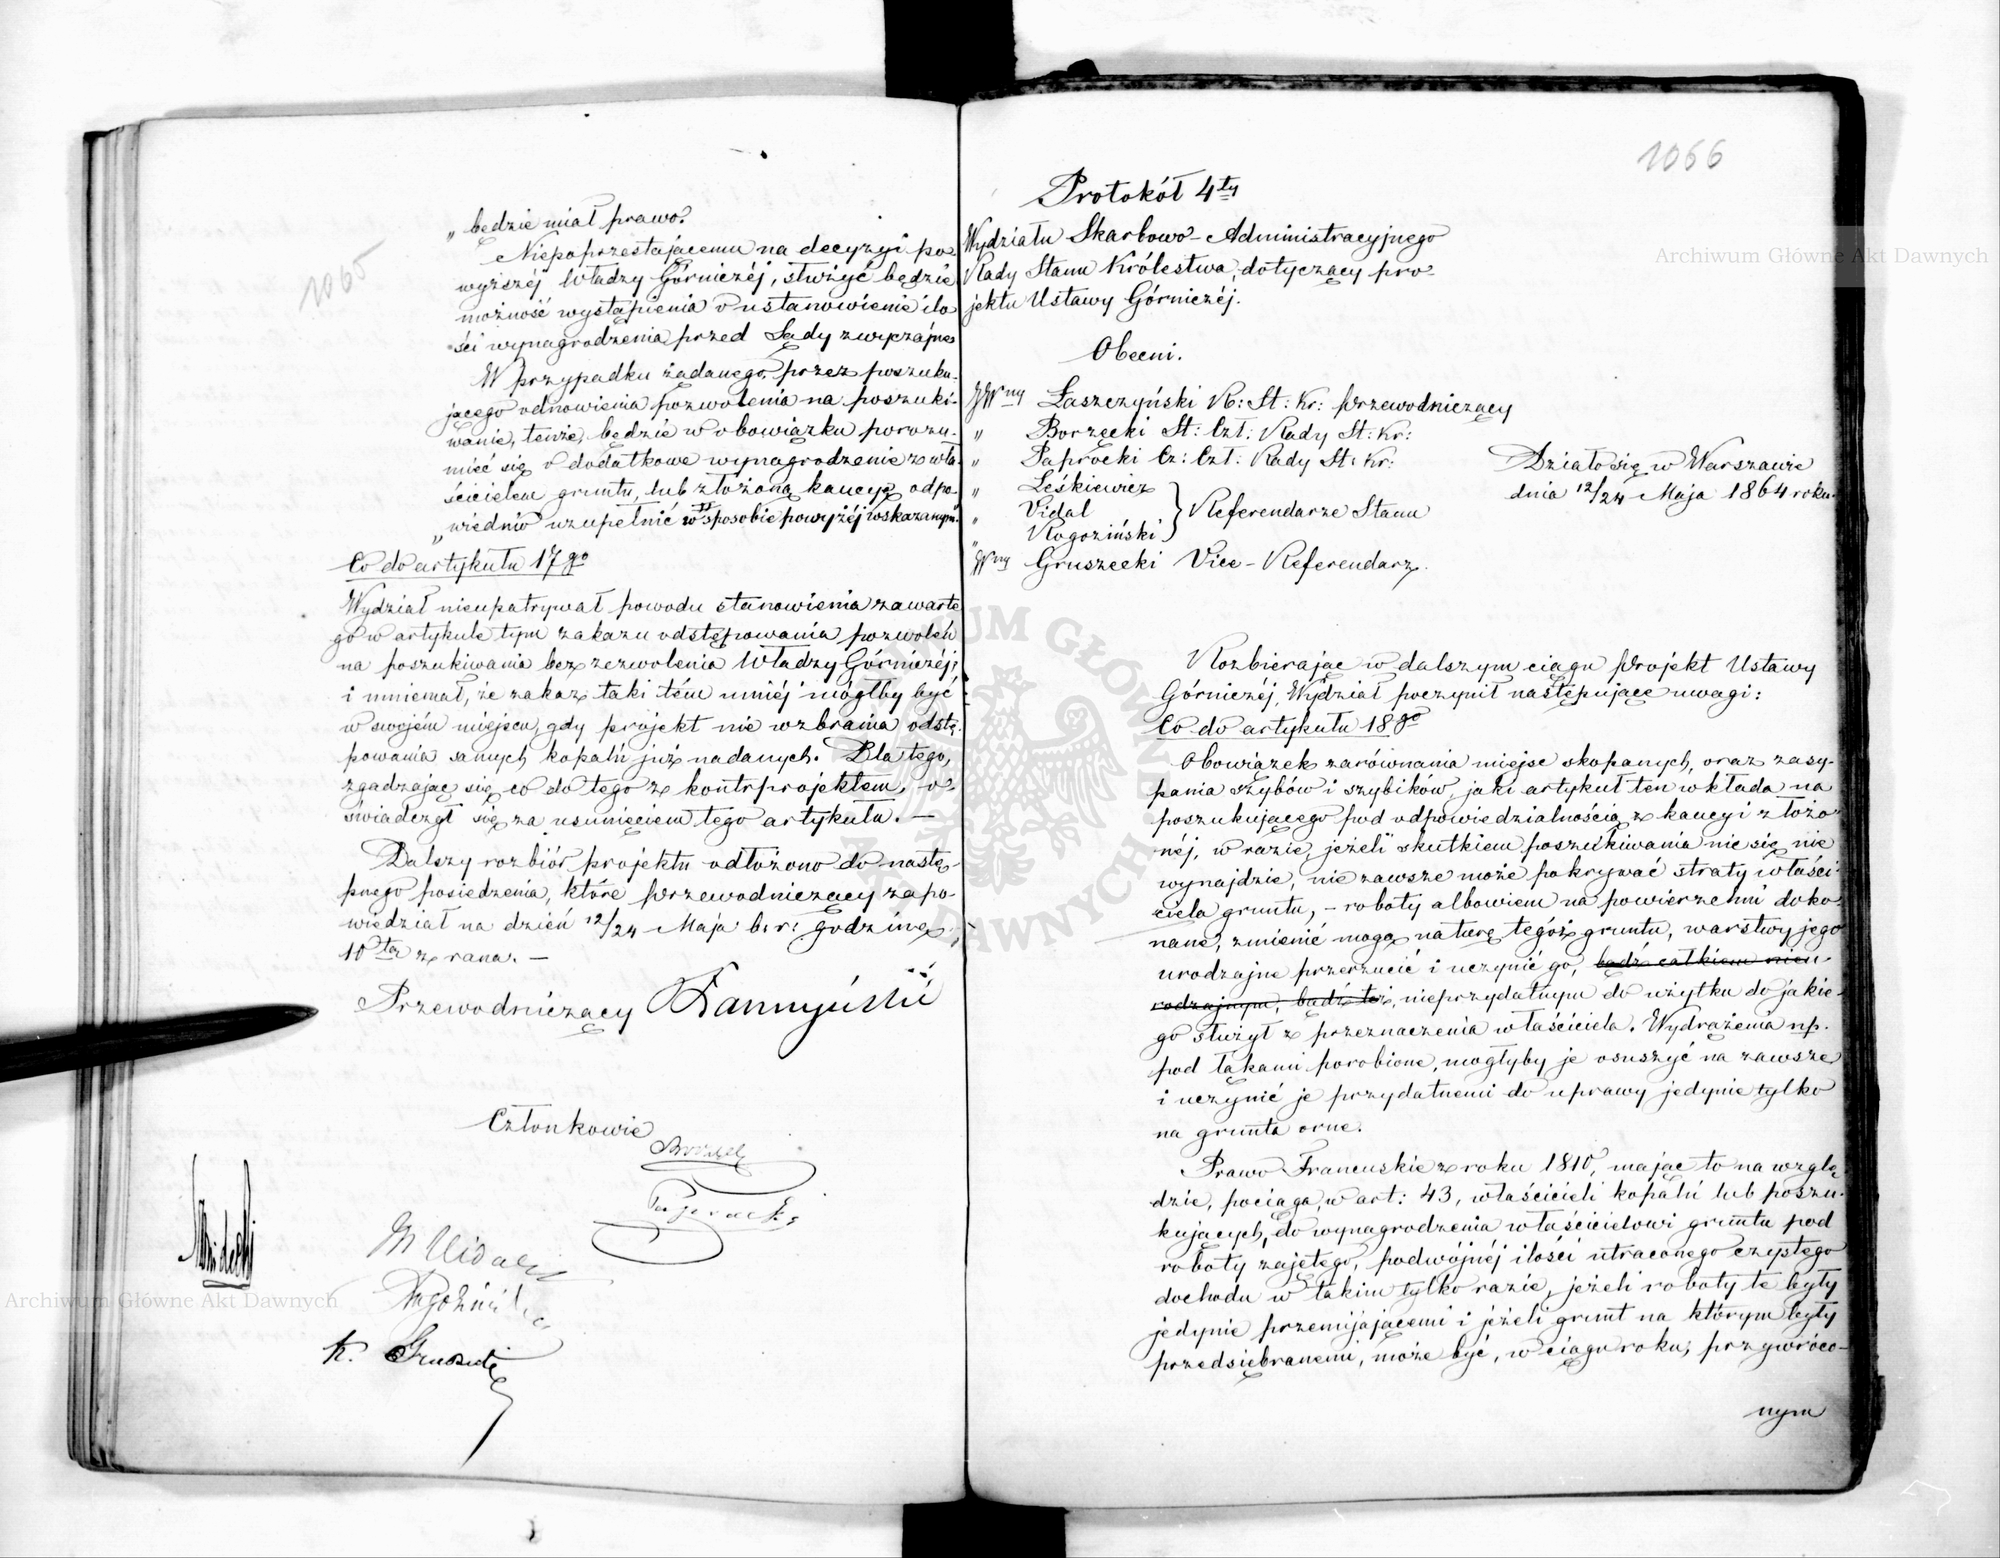 1065
„ będzie miał prawo.
Niepoprzestającemu na decyzyi po-
wyższéj Władzy Górniczéj, służyć będzie
możność wystąpienia o ustanowienie ilo
ści wynagrodzenia przed Sądy zwyczajne
W przypadku żądanego przez poszuku-
jącego odnowienia pozwolenia na poszuki-
wanie, tenże, będzie w obowiązku porozu-
mieć się o dodatkowe wynagrodzenie z wła-
ścicielem gruntu, lub złożoną kaucyą odpo-
„ wiednio uzupełnić w sposobie powyżéj wskazanym."
Co do artykułu 17go
Wydział nieupatrywał powodu stanowienia zawarte
go w artykule tym zakazu odstępowania pozwoleń
na poszukiwania bez zezwolenia Władzy Górniczéj;
i mniemał, że zakaz taki tém mniéj mógłby być
w swojém miejscu, gdy projekt nie wzbrania odstę-
powania samych kopalń już nadanych. Dla tego,
zgadzając się co do tego z kontrprojektem, o-
świadczył się za usunięciem tego artykułu. —
Dalszy rozbiór projektu odłożono do nastę-
pnego posiedzenia, które Przewodniczący zapo-
wiedział na dzień 12/24 Maja b. r: godzinę
10tą z rana. —
Przewodniczący
Członkowie
M Vidal
K.
1066
Protokół 4ty
Wydziału Skarbowo-Administracyjnego
Rady Stanu Królestwa, dotyczący pro-
jektu Ustawy Górniczéj.
Obecni.
JJWny Łaszczyński R: St: Kr: Przewodniczący
„ Borzęcki St: Czł: Rady St: Kr:
„ Paprocki Cz: Czł: Rady St: Kr:
„ Leśkiewicz
„ Vidal } Referendarze Stanu
„ Rogoziński
Wny Gruszecki Vice-Referendarz.
Działo się w Warszawie
dnia 12/24 Maja 1864 roku.
Rozbierając w dalszym ciągu Projekt Ustawy
Górniczéj, Wydział poczynił następujące uwagi:
Co do artykułu 18go
Obowiązek zarównania miejsc skopanych, oraz zasy-
pania szybów i szybików, jaki artykuł ten wkłada na
poszukującego pod odpowiedzialnością z kaucyi złożo
néj, w razie, jeżeli skutkiem poszukiwania nic się nie
wynajdzie, nie zawsze może pokrywać straty właści-
ciela gruntu, – roboty albowiem na powierzchni doko-
nane, zmienić mogą naturę tegóż gruntu, warstwy jego
urodzajne przerzucić i uczynić go, bądź całkiem nieu-
rodzajnym, bądź też, nieprzydatnym do użytku do jakie-
go służył z przeznaczenia właściciela. Wydrążenia np.
pod łąkami porobione, mogłyby je osuszyć na zawsze
i uczynić je przydatnemi do uprawy jedynie tylko
na grunta orne.
Prawo Francuskie z roku 1810, mając to na wzglę
dzie, pociąga, w art: 43, właścicieli kopalń lub poszu-
kujących, do wynagrodzenia właścicielowi gruntu pod
roboty zajętego, podwójnéj ilości utraconego czystego
dochodu w takim tylko razie, jeżeli roboty te były
jedynie przemijającemi i jeżeli grunt na którym były
przedsiębranemi, może być, w ciągu roku, przywróco-
nym
Archiwum Główne Akt Dawnych
Archiwum Główne Akt Dawnych
ARCHIWUM GŁÓWNE AKT DAWNYCH